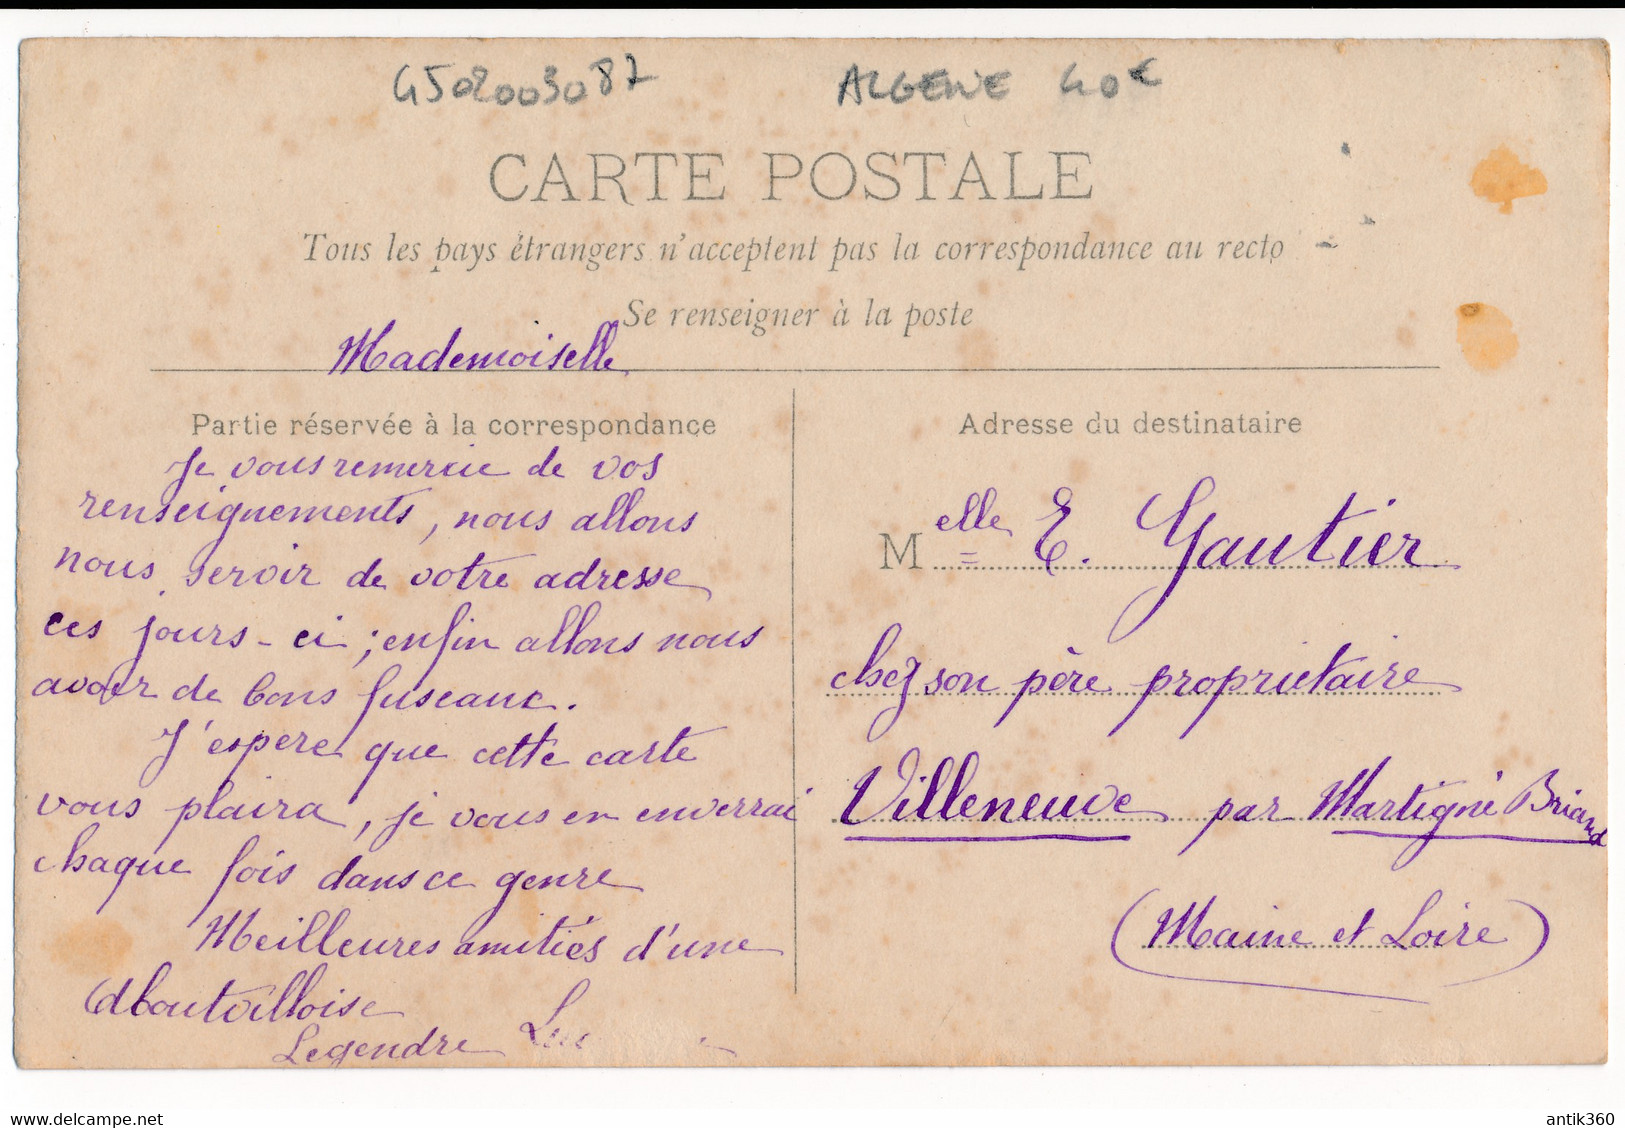 4502003087 ALGERIE 40€
CARTE POSTALE
Tous les pays étrangers n'acceptent pas la correspondance au recto
Se renseigner à la poste
Mademoiselle
Partie réservée à la correspondance
Je vous remercie de vos
renseignements, nous allons
nous servir de votre adresse
ces jours-ci ; enfin allons nous
avoir de bons fuseaux.
J'espère que cette carte
vous plaira, je vous en enverrai
chaque fois dans ce genre
Meilleures amitiés d'une
Legendre
Adresse du destinataire
Melle E. Gautier
chez son père propriétaire
Villeneuve par Martigné Briand
(Maine et Loire)
www.delcampe.net
antik360